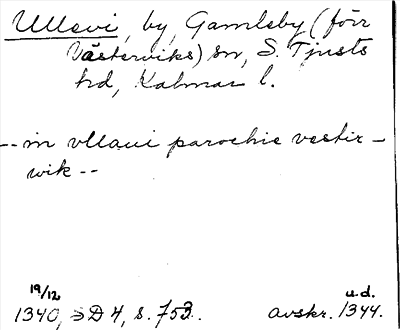 Ullevi, by, Gamleby (förr
Västerviks) sn, S. Tjusts
hd, Kalmar l.
-- in vllaui parochie vestir-
wik --
19/12 u.d.
1340, D 4, s. 753. avskr. 1344.